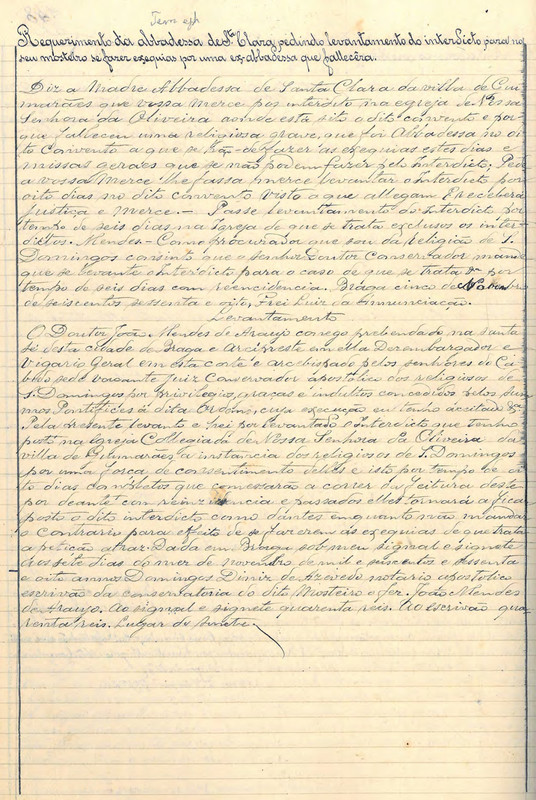 Requerimento da abbadessa de Sta Clara, pedindo levantamento do interdicto para no
seu mosteiro se fazer exequias por uma ex-abbadessa que fallecêra.
Diz a Madre Abbadessa de Santa Clara da villa de Gui-
marães que vossa merce poz interdicto na egreja de Nossa
Senhora da Oliveira aonde está sito o dito convento e por-
que falleceu uma religiosa grave, que foi Abbadessa no di-
to Convento a que se hão-de fazer as exequias estes dias e
missas geraes que se não podem fazer pelo Interdicto, Pede
a vossa Merce lhe faça merce levantar o Interdicto por
oito dias no dito convento visto o que allegam E receberá
Justiça e Merce. — Passe levantamento do Interdicto por
tempo de seis dias na Igreja de que se trata exclusos os inter-
dictos. Mendes. — Como procurador que sou da Religião de S.
Domingos consinto que o senhor Doutor Conservador mande
que se levante o Interdicto para o caso de que se trata por
tempo de seis dias com reencidencia. Braga cinco de Novembro
de seiscentos sessenta e oito, Frei Luiz da Annunciação.
Levantamento
O Doutor João Mendes de Araujo conego prebendado na Santa
Sé desta cidade de Braga e Arcipreste em ella Dezembargador e
Vigario Geral em esta corte e arcebispado pelos senhores do Ca-
bido sede vacante Juiz Conservador apostolico dos religiosos de
S. Domingos por privilegios, graças e indultos concedidos pelos Sum-
mos Pontifices á dita Ordem, cuja execução eu tenho aceitado
Pela presente levanto e hei por levantado o Interdicto que tenho
posto na Igreja Collegiada de Nossa Senhora da Oliveira da
villa de Guimarães a instancia dos religiosos de S. Domingos
por uma força de consentimento delles e isto por tempo de oi-
to dias completos que comessarão a correr da leitura deste
por deante com reinzidencia e passados elles tornará a ficar
posto o dito interdicto como dantes enquanto não mandar
o contrario para efeito de se fazerem as exequias de que trata
a petição atraz. Dada em Braga sob meu signal e signete
aos sete dias do mez de novembro de mil e seiscentos e sessenta
e oito annos Domingos de Azevedo notario apostolico
escrivão da conservatoria do dito Mosteiro o fez. João Mendes
de Araujo. Ao signal e signete quarenta reis. Ao escrivão qua-
renta reis. Lugar do sinete.